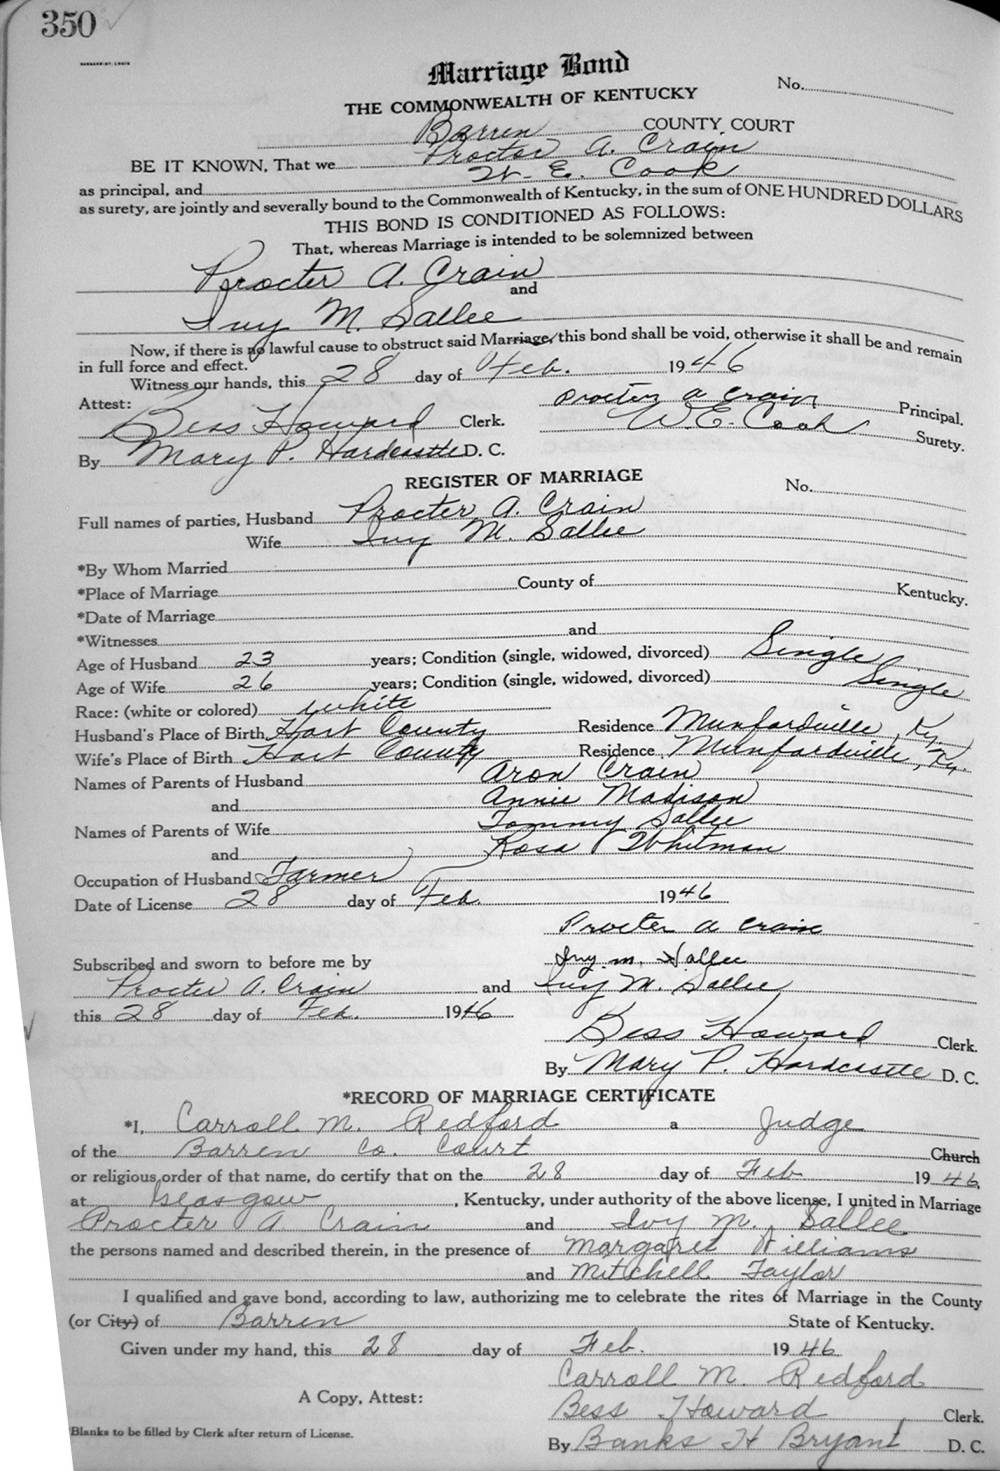 350
Marriage Bond
No.
THE COMMONWEALTH OF KENTUCKY
Barren COUNTY COURT
BE IT KNOWN, That we Proctor A. Crain
as principal, and W. E. Cook
as surety, are jointly and severally bound to the Commonwealth of Kentucky, in the sum of ONE HUNDRED DOLLARS
THIS BOND IS CONDITIONED AS FOLLOWS:
That, whereas Marriage is intended to be solemnized between
Procter A. Crain
and
Ivy M. Sallee
Now, if there is no lawful cause to obstruct said Marriage, this bond shall be void, otherwise it shall be and remain
in full force and effect.
Witness our hands, this 28 day of Feb. 1946
Attest: Procter A Crain Principal.
Bess Howard Clerk. W.E. Cook Surety.
By Mary P. Hardcastle D. C.
REGISTER OF MARRIAGE No.
Full names of parties, Husband Procter A. Crain
Wife Ivy M. Sallee
*By Whom Married
*Place of Marriage County of Kentucky.
*Date of Marriage
*Witnesses and
Age of Husband 23 years; Condition (single, widowed, divorced) Single
Age of Wife 26 years; Condition (single, widowed, divorced) Single
Race: (white or colored) White
Husband's Place of Birth Hart County Residence Munfordville, Ky.
Wife's Place of Birth Hart County Residence Munfordville, Ky.
Names of Parents of Husband Aron Crain
and Annie Madison
Names of Parents of Wife Tommy Sallee
and Rosa Whitman
Occupation of Husband Farmer
Date of License 28 day of Feb. 1946
Procter A Crain
Subscribed and sworn to before me by Ivy. m. Sallee
Procter A. Crain and Ivy M. Sallee
this 28 day of Feb. 1946
Bess Howard Clerk.
By Mary P. Hardcastle D. C.
*RECORD OF MARRIAGE CERTIFICATE
*I, Carroll M. Redford a Judge
of the Barren Co. Court Church
or religious order of that name, do certify that on the 28 day of Feb 1946,
at Glasgow, Kentucky, under authority of the above license, I united in Marriage
Procter A Crain and Ivy M. Sallee
the persons named and described therein, in the presence of Margaret Williams
and Mitchell Taylor
I qualified and gave bond, according to law, authorizing me to celebrate the rites of Marriage in the County
(or City) of Barren State of Kentucky.
Given under my hand, this 28 day of Feb. 1946
Carroll M. Redford
A Copy, Attest: Bess Howard Clerk.
*Blanks to be filled by Clerk after return of License.
By Banks H Bryant D. C.